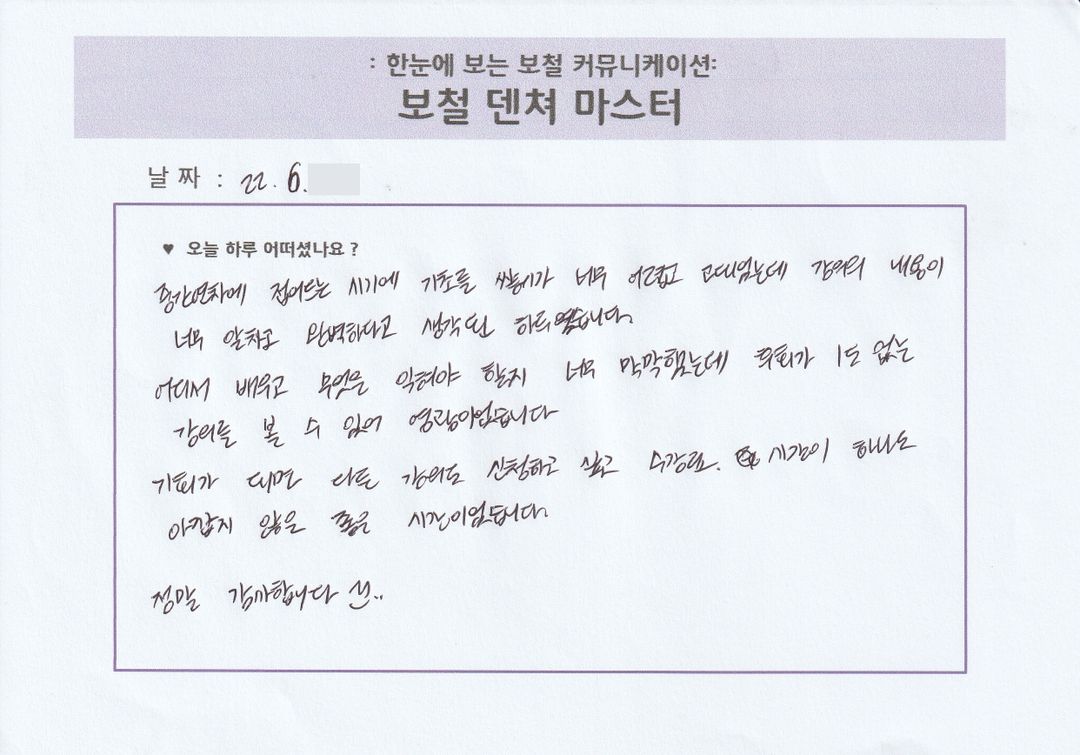 : 한눈에 보는 보철 커뮤니케이션:
보철 덴쳐 마스터
날짜 : 22. 6.
♥ 오늘 하루 어떠셨나요 ?
중간연차에 접어드는 시기에 기초를 쌓기가 너무 어렵고 고되었는데 강의의 내용이
너무 알차고 완벽하다고 생각된 하루였습니다.
어디서 배우고 무엇을 익혀야 할지 너무 막막했는데 후회가 1도 없는
강의를 볼 수 있어 영광이었습니다
기회가 되면 다른 강의도 신청하고 싶고 수강료. 시간이 하나도
아깝지 않은 좋은 시간이었습니다.
정말 감사합니다